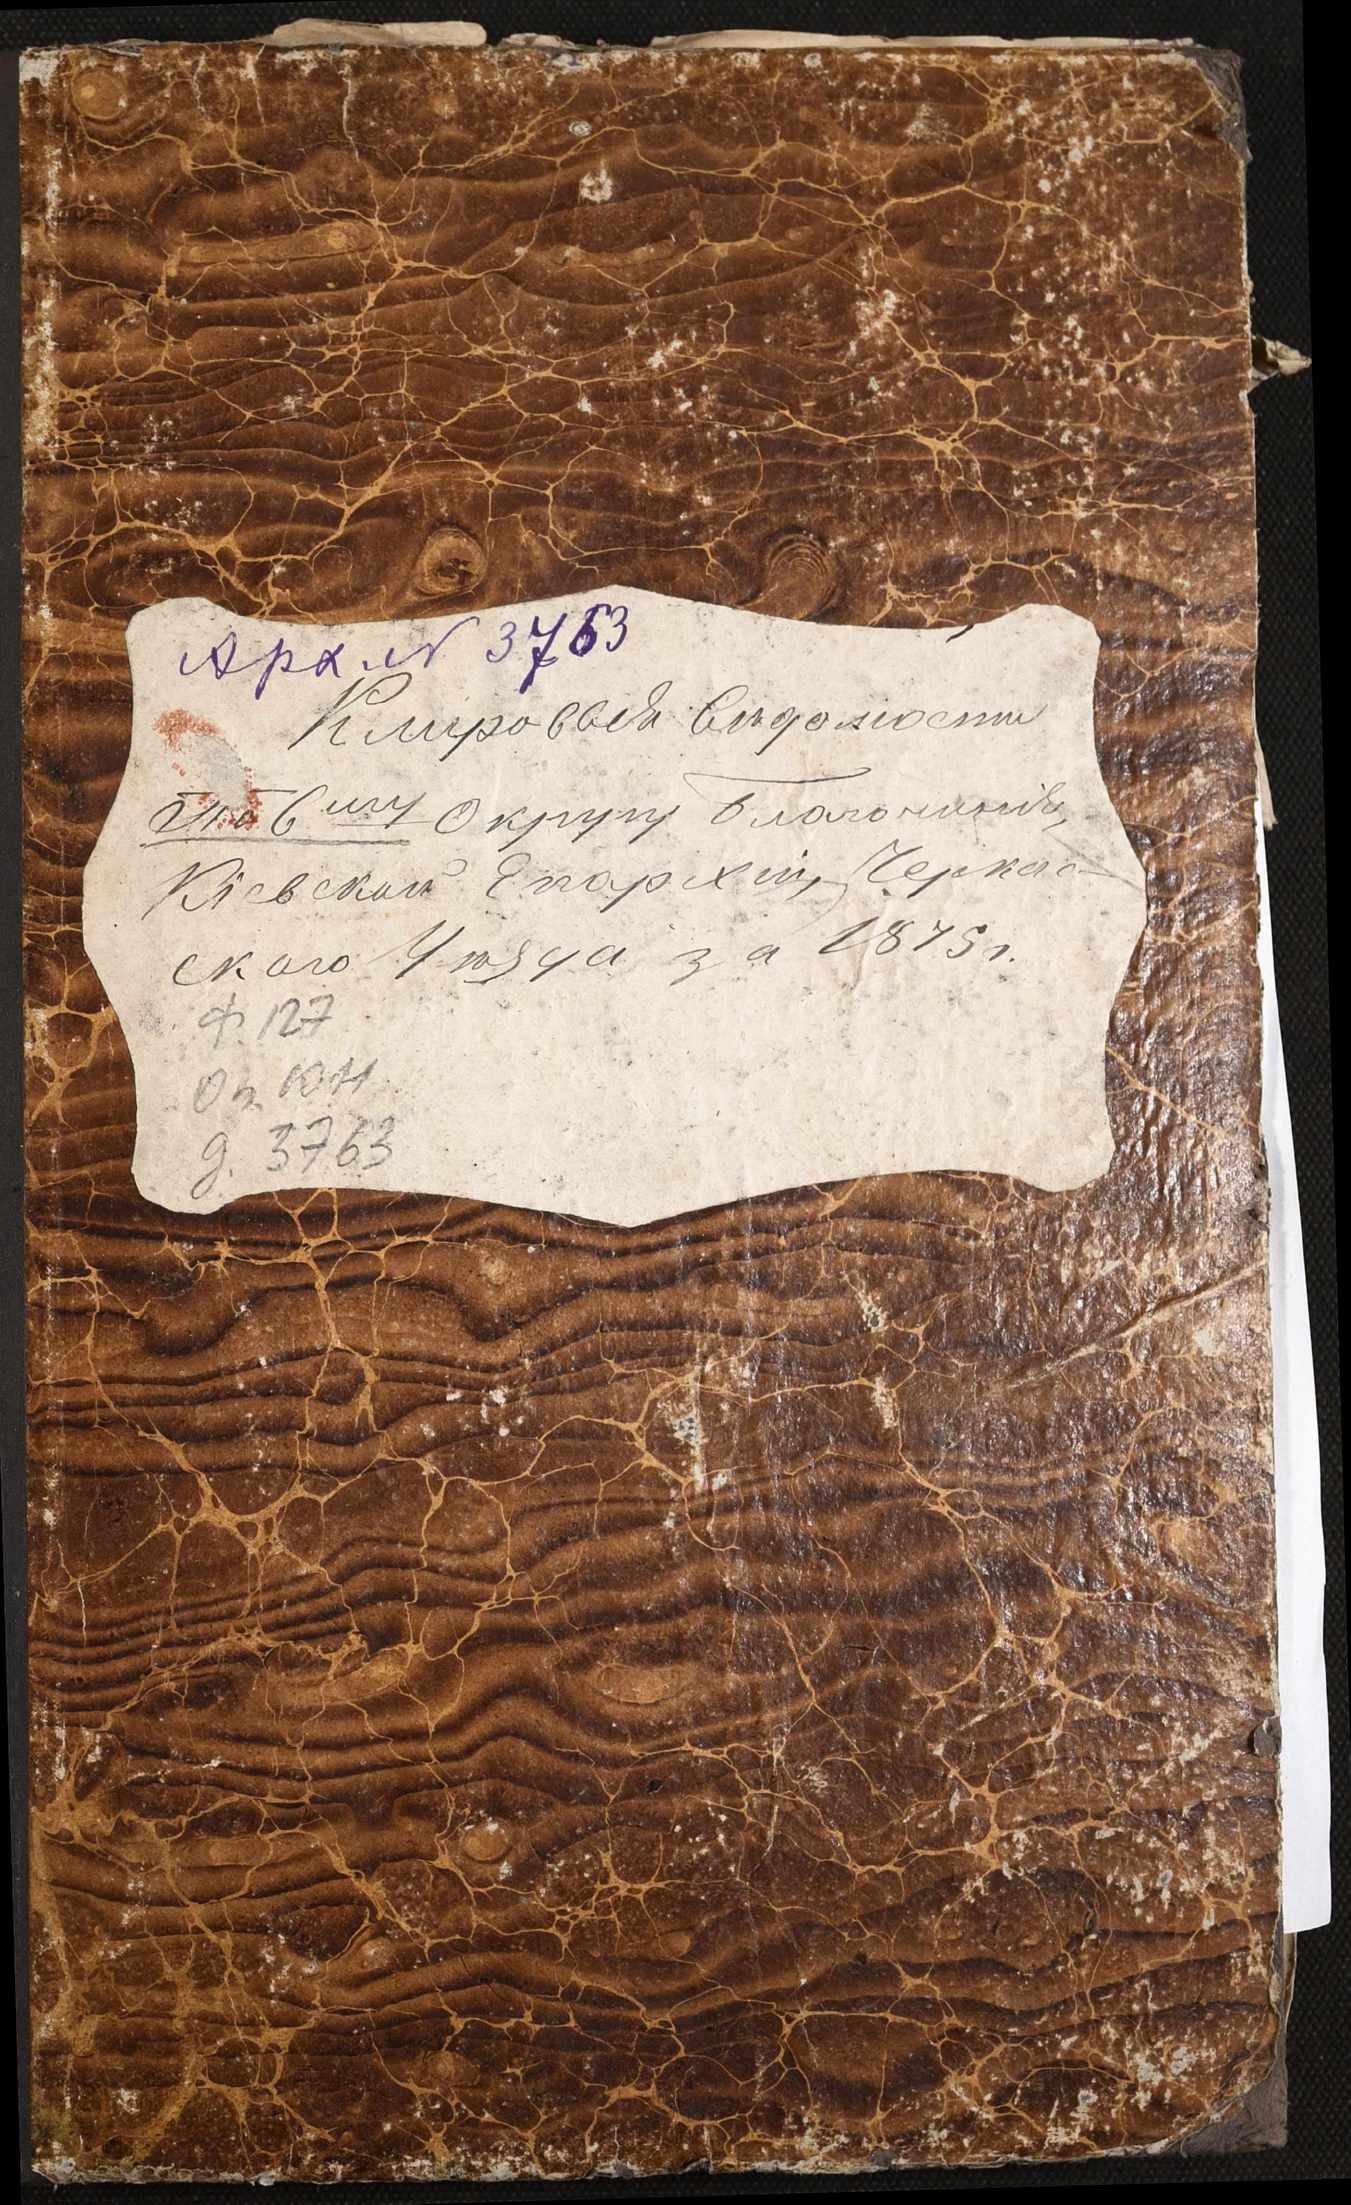 Арх. № 3763
Клировыя вѣдомости
По 6му Округу Благочинія,
Кіевской Епархіи, Черкас-
ского Уѣзда за 1875 г.
Ф. 127
Оп.
д. 3763